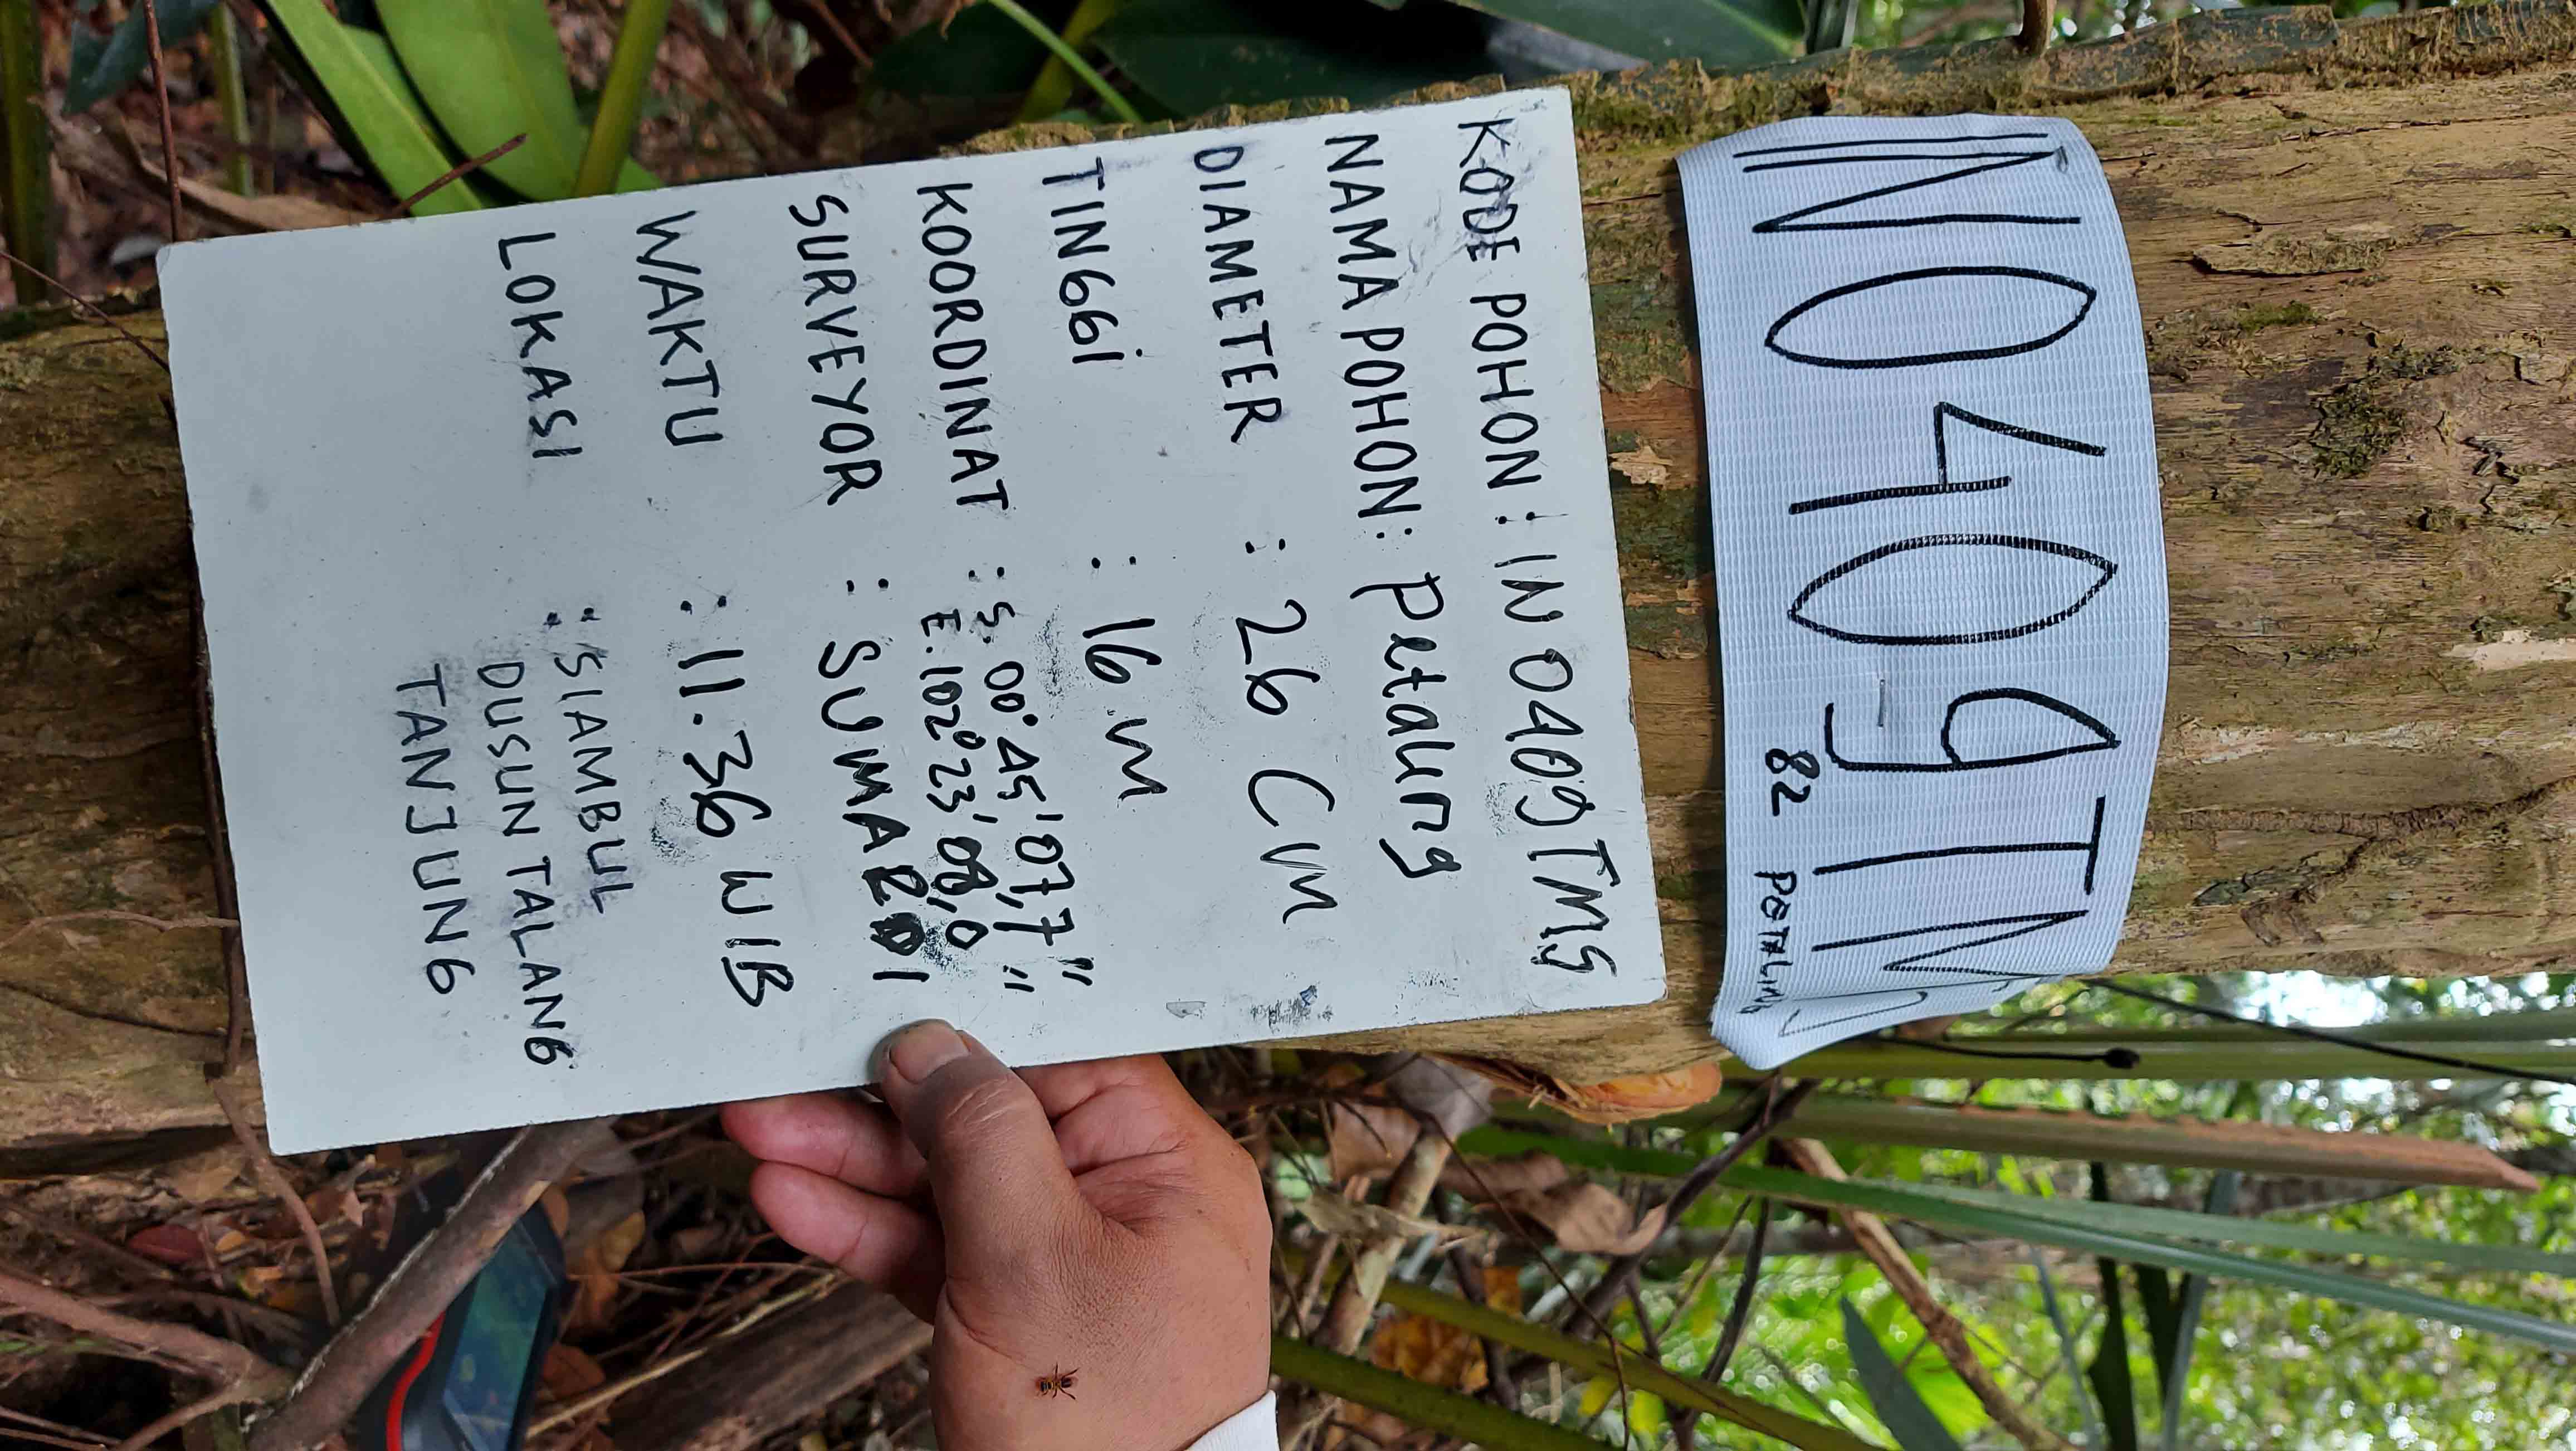 INO409TMS
82 PETALING
KODE POHON : INO409TMS
NAMA POHON : Petaling
DIAMETER : 26 Cm
TINGGI : 16 m
KOORDINAT : S. 00°45'07,7"
E. 102°23'08,0"
SURVEYOR : SUMARDI
WAKTU : 11.36 WIB
LOKASI : SIAMBUL
DUSUN TALANG
TANJUNG